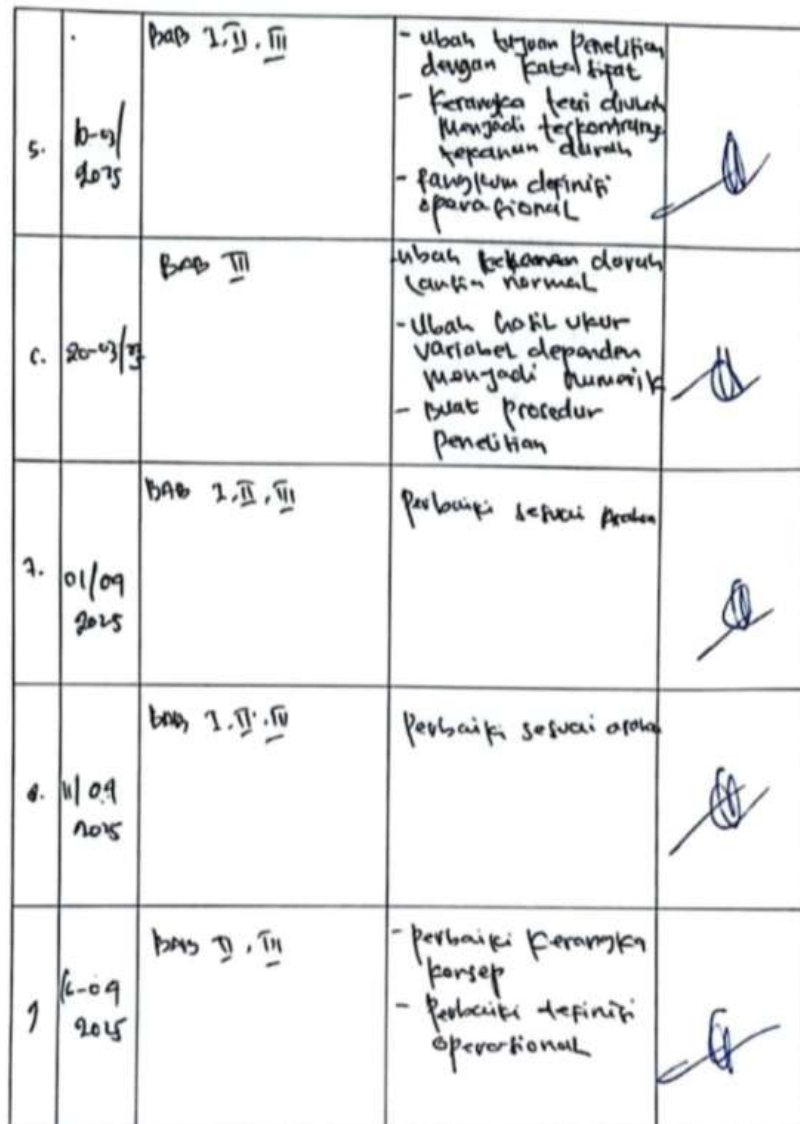 BAB I, II, III
- Ubah tujuan Penelitian
dengan kata sifat
- Kerangka teori diubah
menjadi terkontrolnya
tekanan darah
- rangkum definisi
operasional
5.
2025
BAB III
ubah tekanan darah
normal
- Ubah hasil ukur
variabel dependen
menjadi numerik
- Buat prosedur
penelitian
6.
20-03/25
BAB I, II, III
Perbaiki sesuai arahan
7.
01/09
2025
BAB I, II, III
Perbaiki sesuai arahan
8.
11/09
2025
BAB II, III
- perbaiki Kerangka
konsep
- Perbaiki definisi
operasional
9
16-09
2025